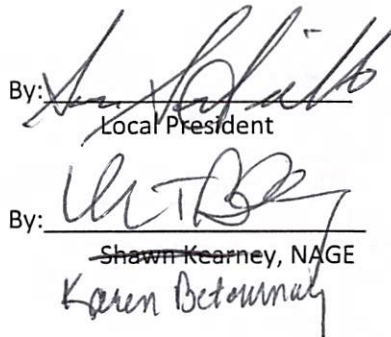 By:
Local President
By:
Shawn Kearney, NAGE
Karen Betournay